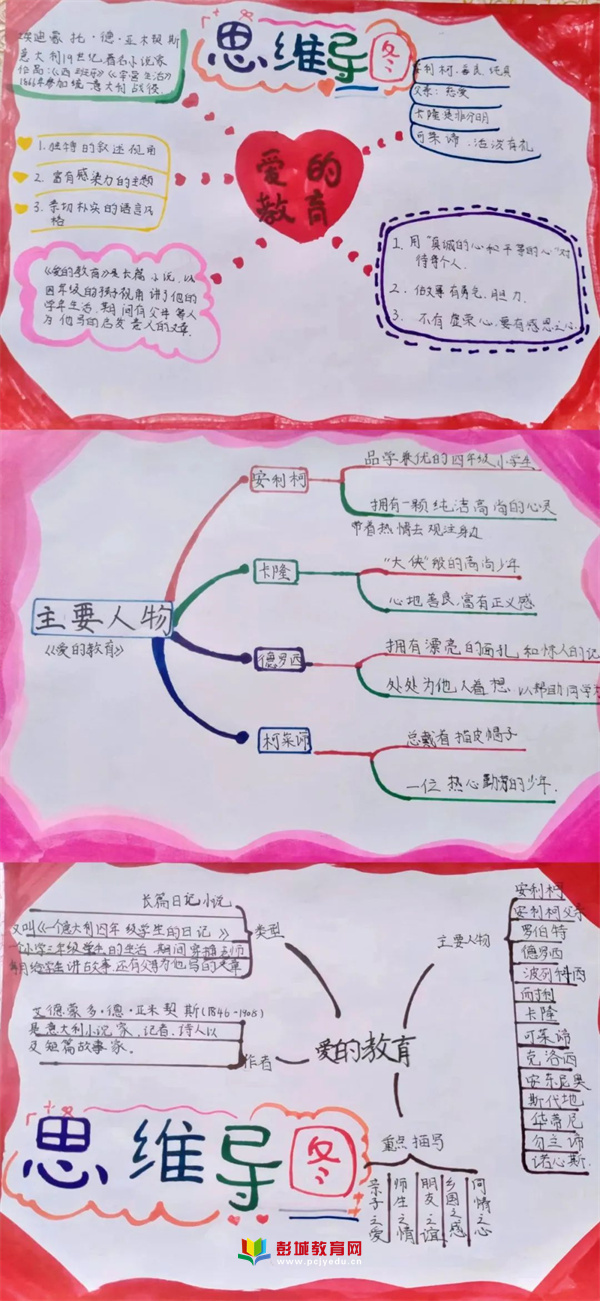 思维导图
埃迪蒙托·德·亚米契斯
意大利19世纪著名小说家
作品:《西班牙》《军营生活》
1866年参加统一意大利战役.
安利柯:善良、纯真
父亲:慈爱
卡隆是非分明
可莱谛:活泼有礼
爱的
教育
1.独特的叙述视角
2.富有感染力的主题
3.亲切朴实的语言风
格
《爱的教育》是长篇小说,以
四年级的孩子视角讲了他的
学年生活,期间有父母等人
为他写的启发意人的文章.
1.用“真诚的心和平等的心”对
待每个人.
2.做事有勇气,胆力.
3.不有虚荣心,要有感恩之心.
主要人物
《爱的教育》
安利柯
品学兼优的四年级小学生
拥有一颗纯洁高尚的心灵
带着热情去观注身边
卡隆
“大侠”般的高尚少年
心地善良,富有正义感
德罗西
拥有漂亮的面孔和惊人的记
处处为他人着想.以帮助同学
柯莱谛
总戴着猫皮帽子
一位热心勤劳的少年.
长篇日记小说
又叫《一个意大利四年级学生的日记》
类型
艾德蒙多·德·亚米契斯(1846-1908)
是意大利小说家,记者,诗人以
及短篇故事家。
作者
爱的教育
主要人物
安利柯
安利柯父亲
罗伯特
德罗西
波列科西
而利
卡隆
可莱谛
克洛西
安东尼奥
斯代地
华蒂尼
诺心斯.
重点描写
亲子之爱
师生之情
朋友之谊
乡国之感
同情之心
思维导图
彭城教育网
www.pcjyedu.cn